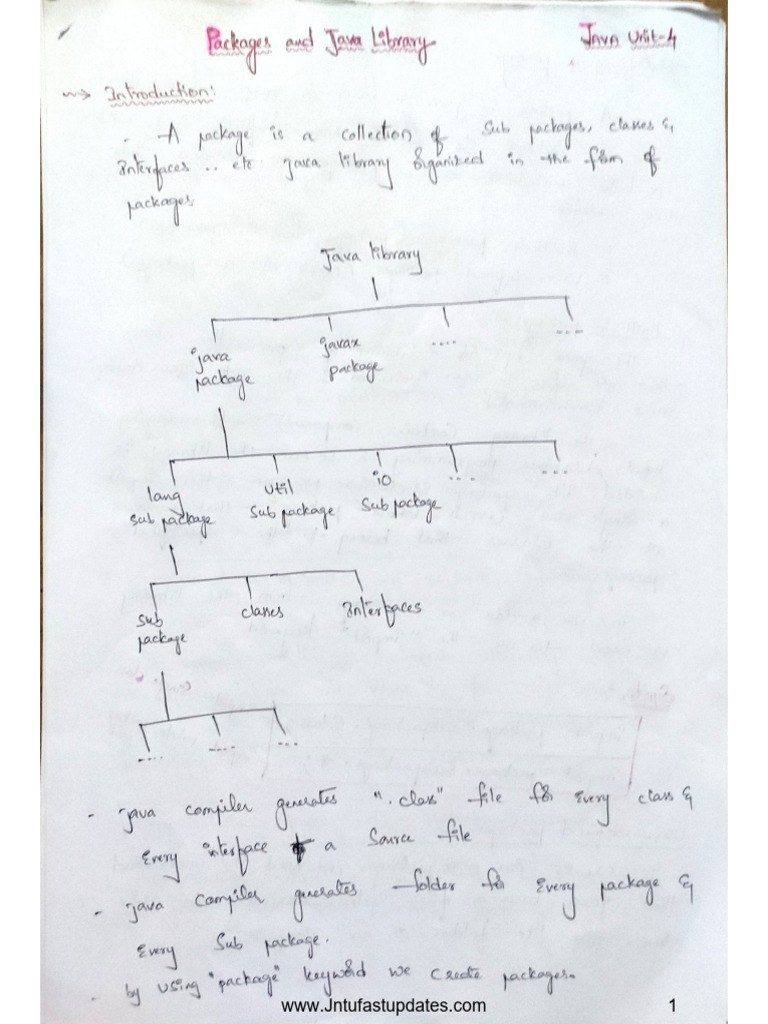 Packages and Java Library
JAVA Unit-4
Introduction:
- A package is a collection of Sub packages, classes &
Interfaces .. etc Java library Organized in the form of
packages
Java library
java package
javax package
....
....
lang sub package
Util Sub package
io Sub package
....
....
sub package
classes
Interfaces
....
....
...
- java compiler generates ".class" file for every class &
Every interface a Source file
- java compiler generates folder for Every package &
Every Sub package.
- by using "package" keyword we create packages.
www.Jntufastupdates.com
1